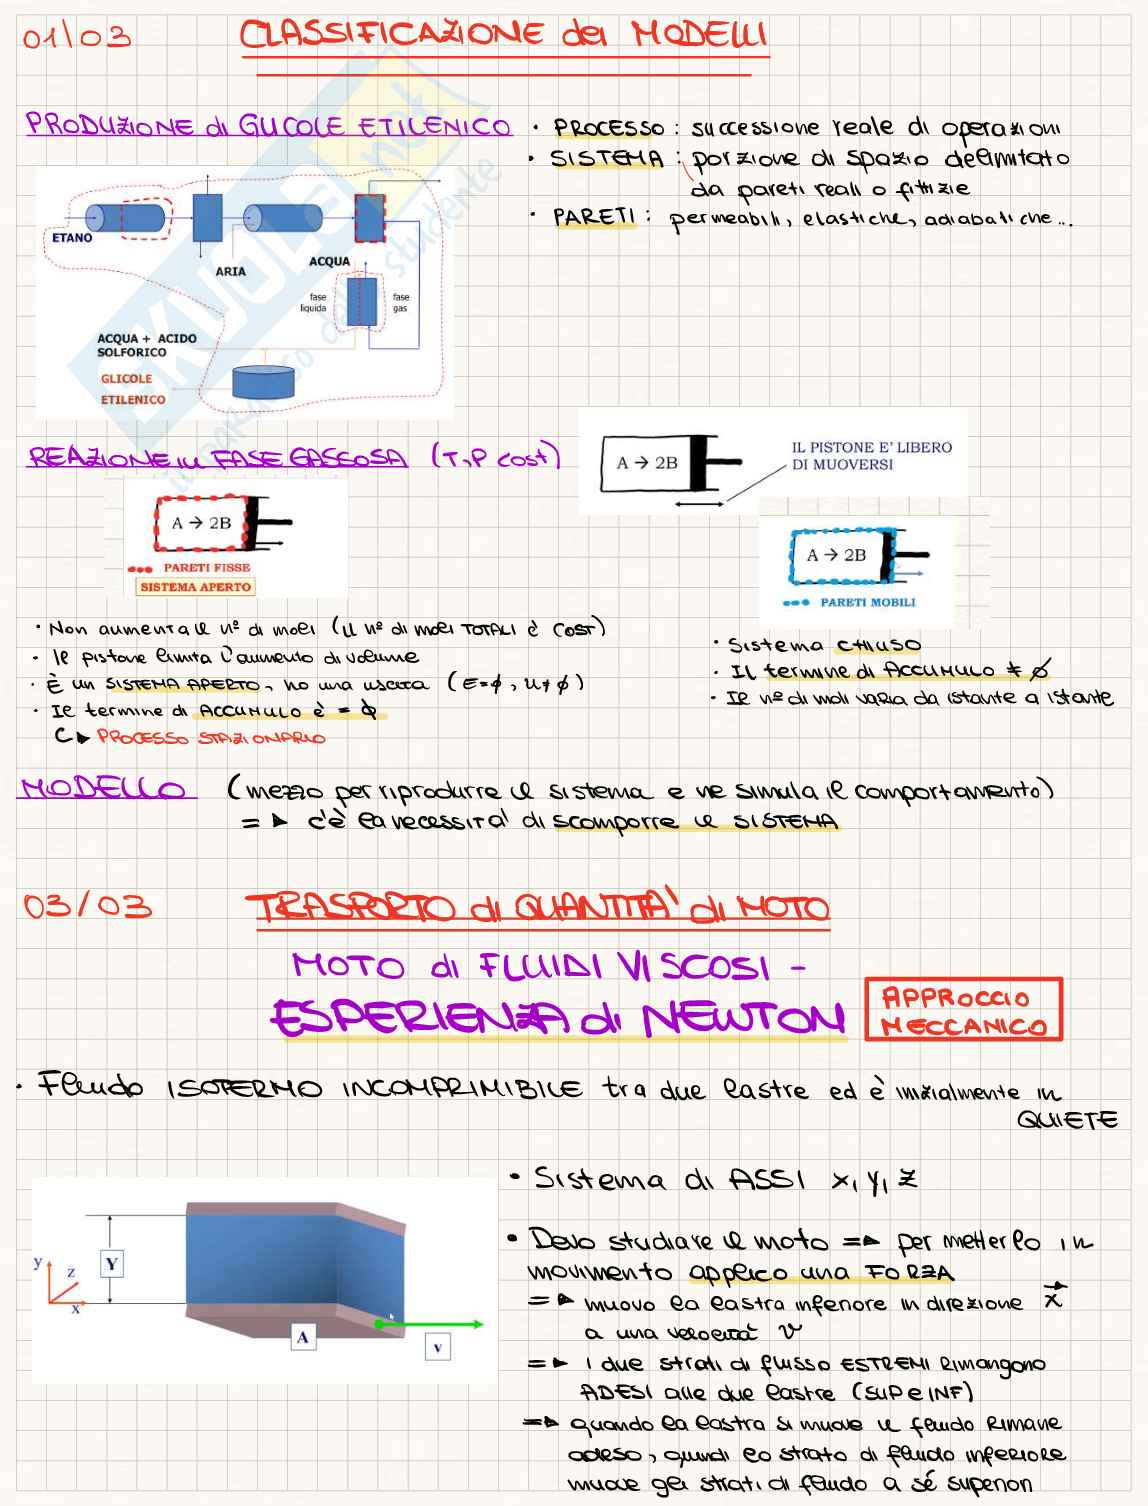 01/03 CLASSIFICAZIONE dei MODELLI
PRODUZIONE di GLICOLE ETILENICO
• PROCESSO : successione reale di operazioni
• SISTEMA : porzione di spazio delimitato
da pareti reali o fittizie
• PARETI : permeabili, elastiche, adiabatiche...
ETANO
ARIA
ACQUA
fase
liquida
fase
gas
ACQUA + ACIDO
SOLFORICO
GLICOLE
ETILENICO
SKUOLA.net
il paradiso dello studente
REAZIONE in FASE GASSOSA (T,P cost)
A → 2B
IL PISTONE E' LIBERO
DI MUOVERSI
A → 2B
PARETI FISSE
SISTEMA APERTO
A → 2B
PARETI MOBILI
• Non aumenta il nº di moli (il nº di moli TOTALI è COST)
• Il pistone limita l'aumento di volume
• È un SISTEMA APERTO, ho una uscita (E=ϕ, U≠ϕ)
• Il termine di ACCUMULO è = ϕ
↳ PROCESSO STAZIONARIO
• Sistema CHIUSO
• Il termine di ACCUMULO ≠ ϕ
• Il nº di moli varia da istante a istante
MODELLO (mezzo per riprodurre il sistema e ne simula il comportamento)
=▶ c'è la necessità di scomporre il SISTEMA
03/03 TRASPORTO di QUANTITA' di MOTO
MOTO di FLUIDI VISCOSI -
ESPERIENZA di NEWTON
APPROCCIO
MECCANICO
• Fluido ISOTERMO INCOMPRIMIBILE tra due lastre ed è inizialmente in
QUIETE
Y
y
z
x
A
v
• Sistema di ASSI x, y, z
• Devo studiare il moto =▶ per metterlo in
movimento applico una FORZA
=▶ muovo la lastra inferiore in direzione x⃗
a una velocità v
=▶ i due strati di flusso ESTREMI rimangono
ADESI alle due lastre (SUP e INF)
=▶ quando la lastra si muove il fluido rimane
adeso, quindi lo strato di fluido inferiore
muove gli strati di fluido a sé superiori